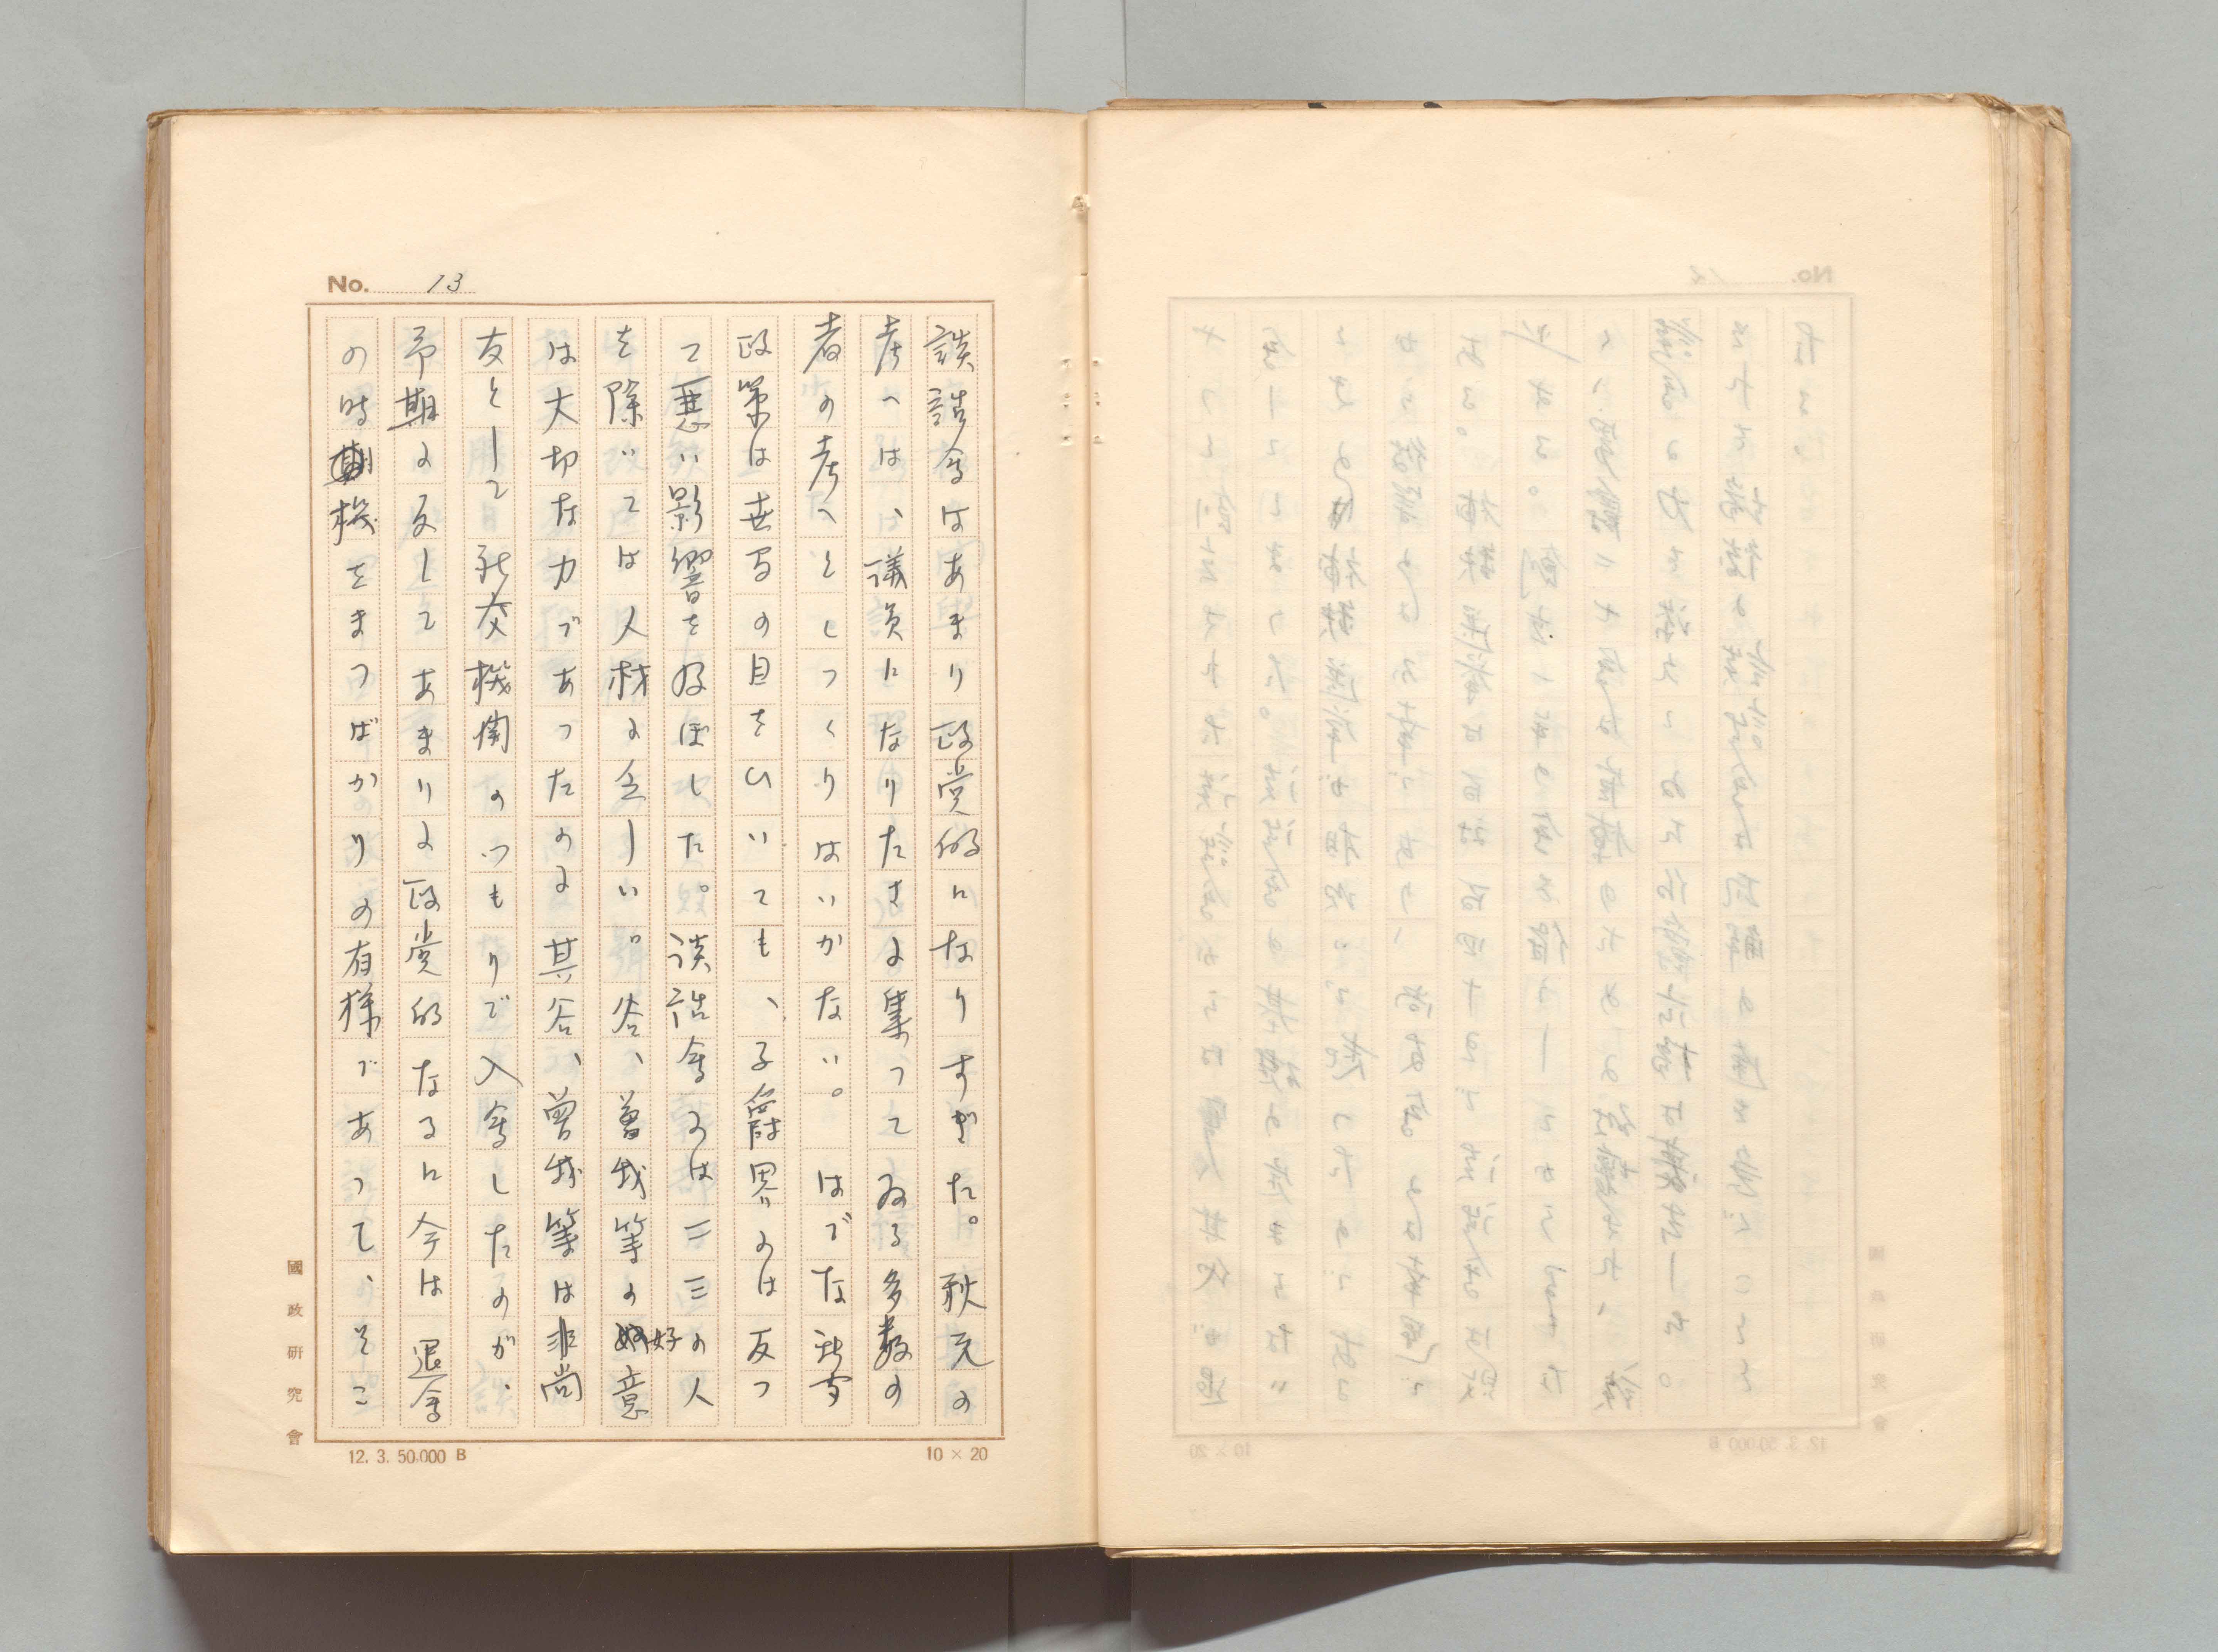 No. 13
談話会はあまり政党的になりすぎた。秋元の
考へは、議員になりたさに集つてゐる多数の
者の考へとしつくりはいかない。はでな社交
政策は世間の目をひいても、子爵界には反つ
て悪い影響を及ぼした。談話会には二三の人
を除いては人材に乏しい。谷、曽我等の好意
は大切な力であつたのに其谷、曽我等は非尚
友として社交機関のつもりで入会したのが、
予期に反してあまりに政党的なるに今は退会
の時機をまつばかりの有様であつて、そこ
國政研究會
12. 3. 50,000 B
10 × 20